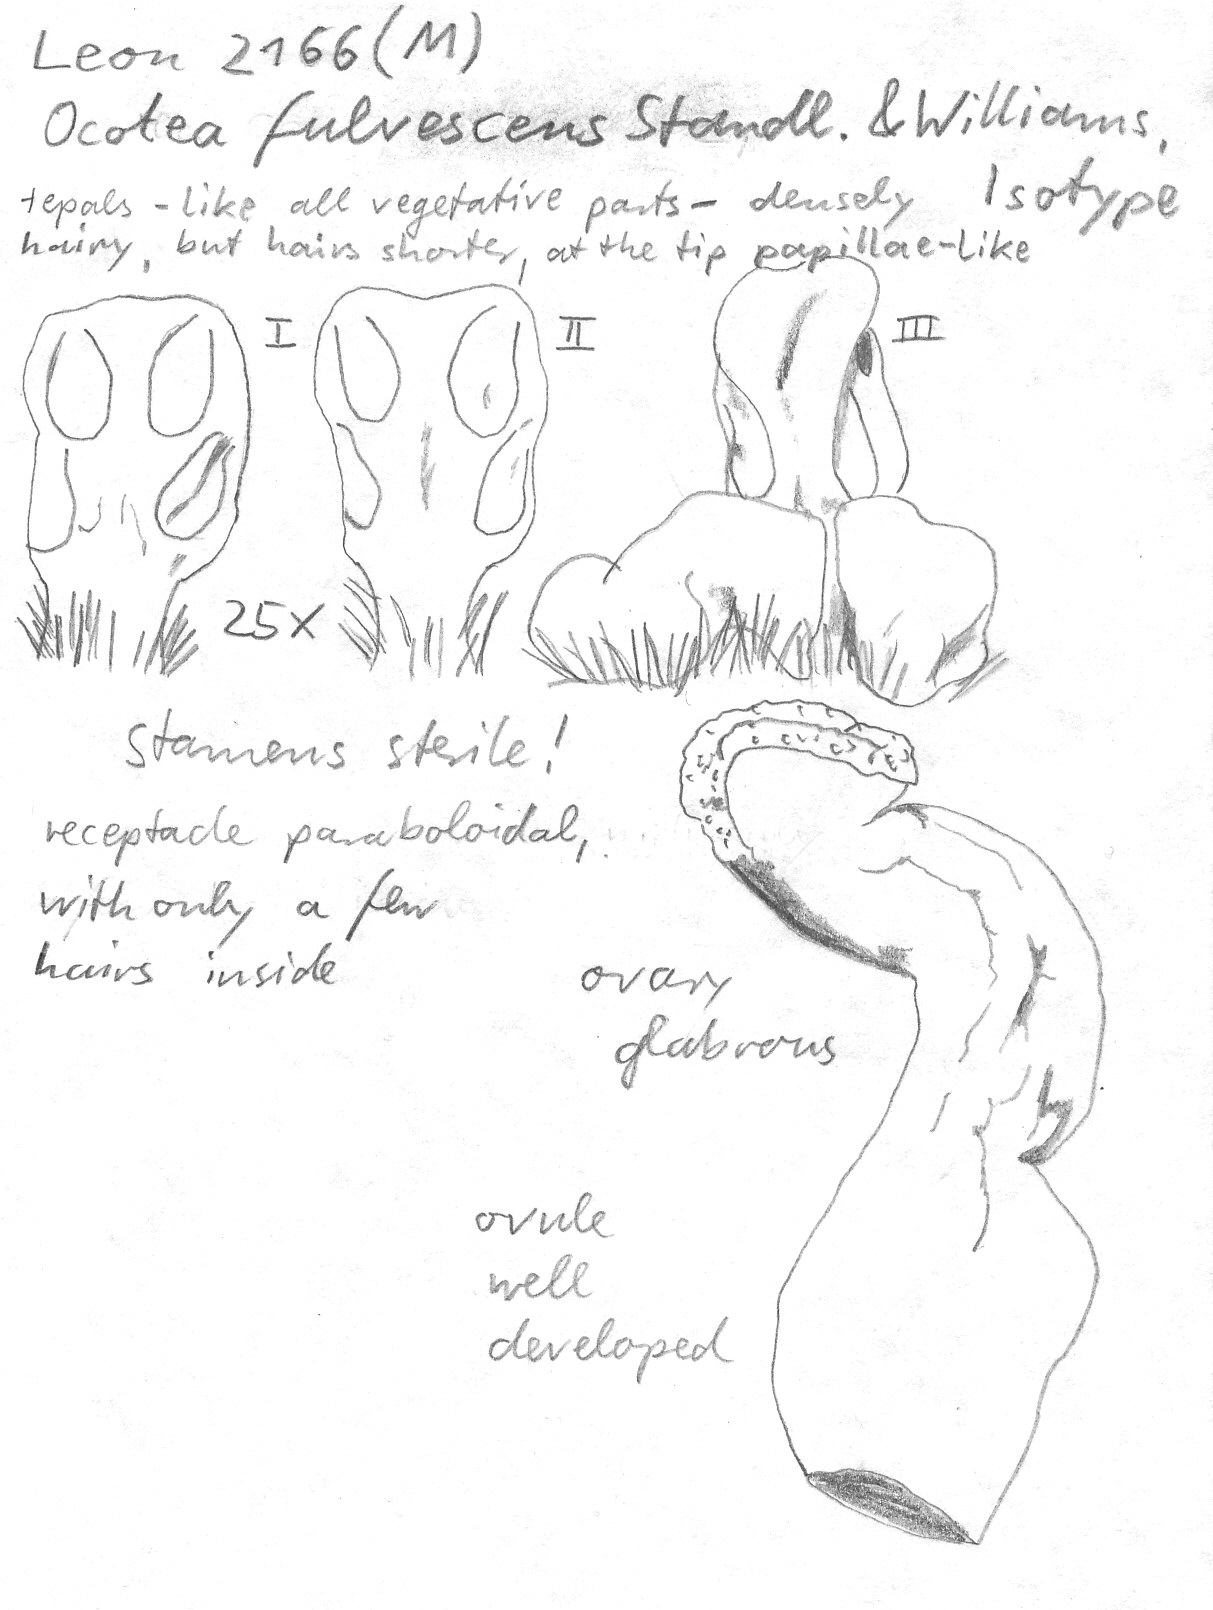 Leon 2166 (M)
Ocotea fulvescens Standl. & Williams,
Isotype
tepals - like all vegetative parts - densely
hairy, but hairs shorter, at the tip papillae-like
I
II
III
25x
Stamens sterile!
receptacle paraboloidal,
with only a few
hairs inside
ovary
glabrous
ovule
well
developed